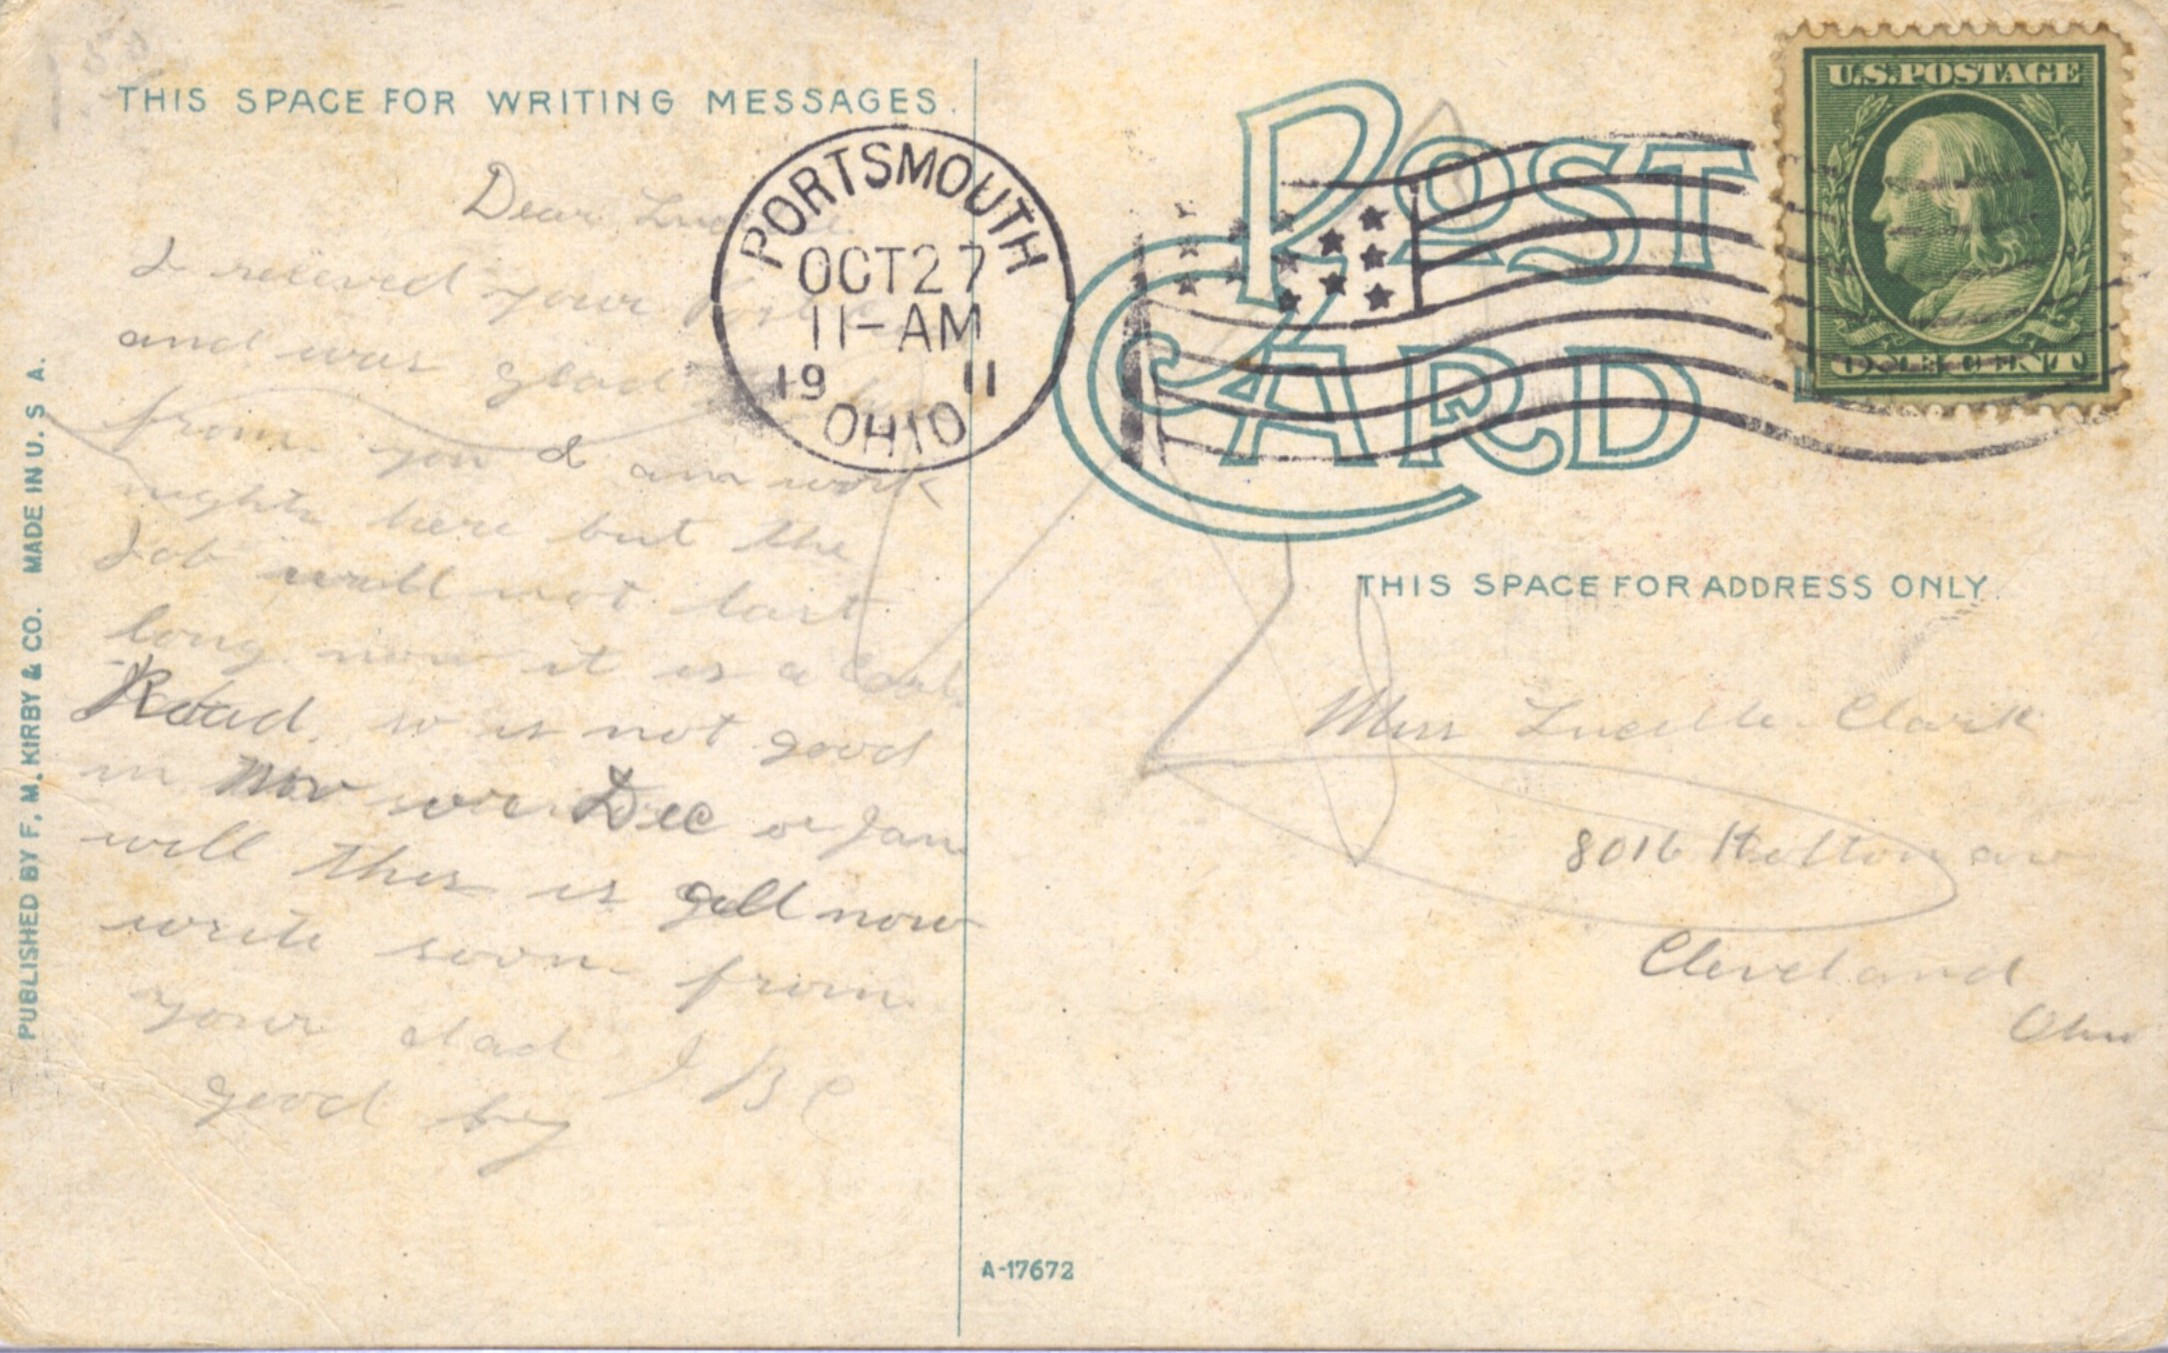 THIS SPACE FOR WRITING MESSAGES.
Dear
I recieved your
and was glad
from you I am work
nights here but the
Job will not last
long now it is a Coal
Road. so is not good
in Nov or Dec or Jan
will this is all now
write soon from
your dad J B C
good by
PUBLISHED BY F. M. KIRBY & CO. MADE IN U. S. A.
PORTSMOUTH
OCT 27
11-AM
1911
OHIO
POST CARD
U.S. POSTAGE
ONE CENT
THIS SPACE FOR ADDRESS ONLY.
Miss Lucille Clark
8016 Holton av
Cleveland
Ohio
A-17672